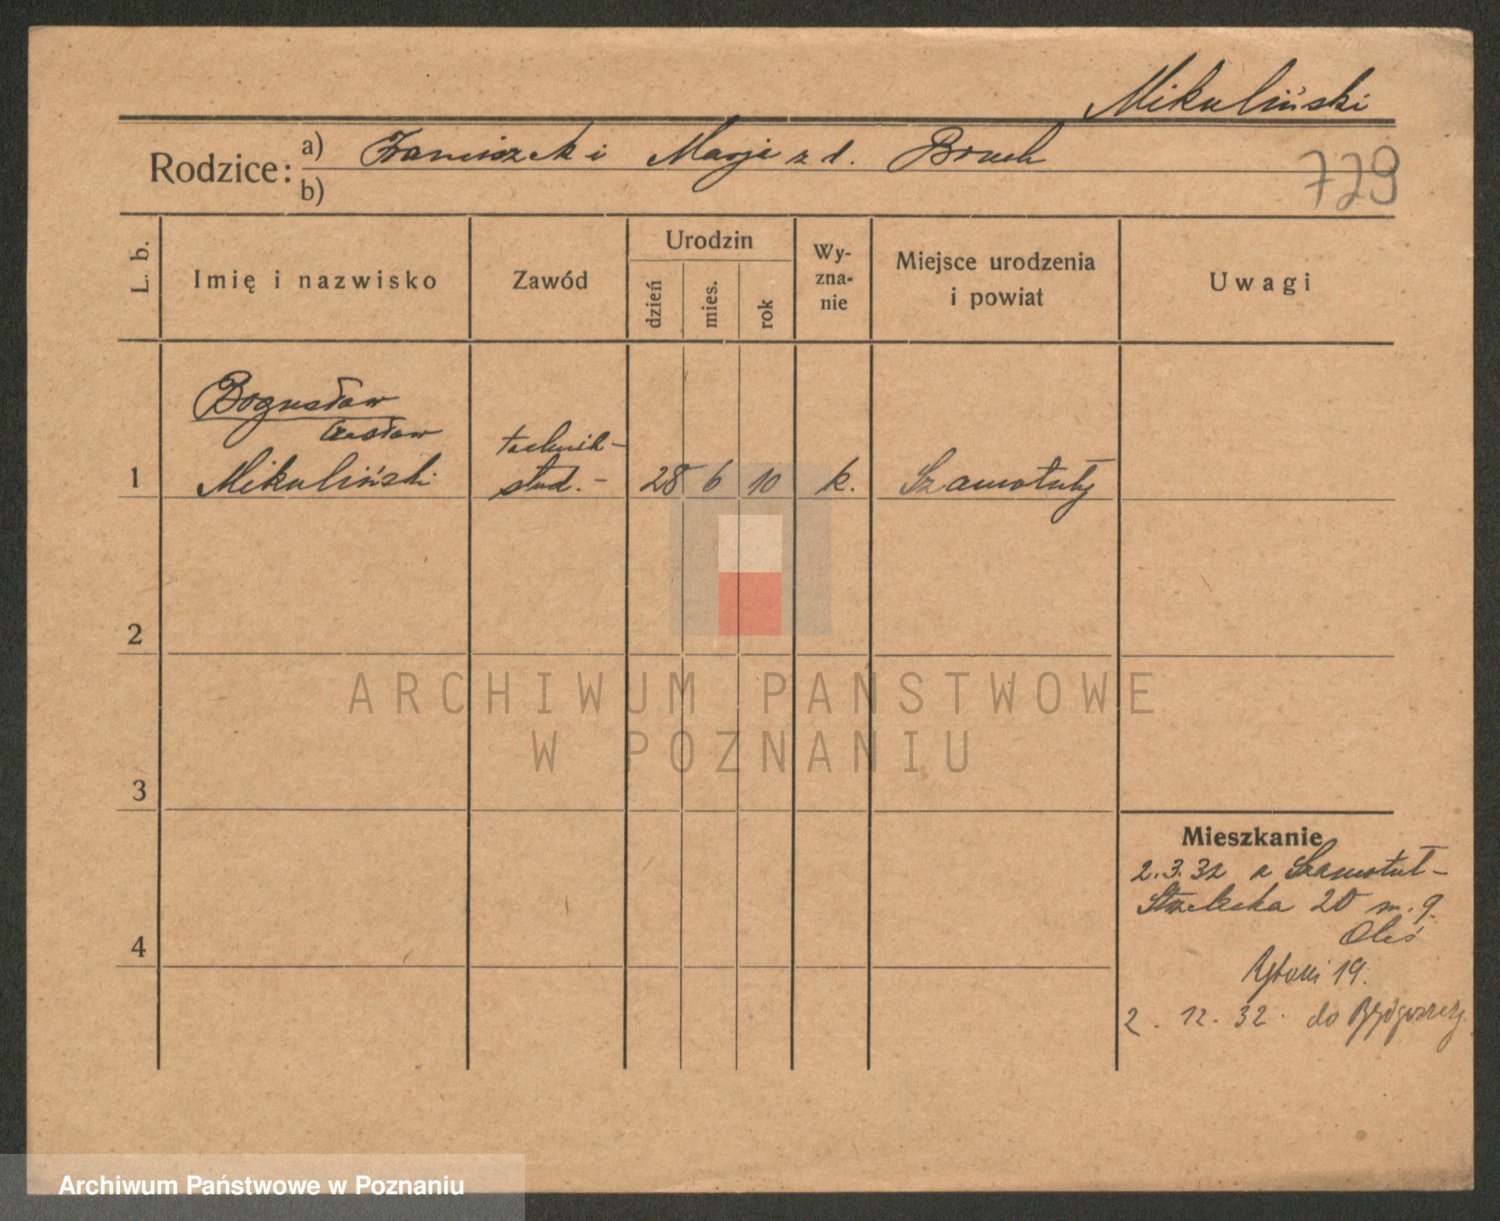 Mikuliński
Rodzice: a) Franciszek i Marja z d. Bruch
b)
729
L. b.
Imię i nazwisko
Zawód
Urodzin
dzień
mies.
rok
Wy-
zna-
nie
Miejsce urodzenia
i powiat
Uwagi
Bogusław
Czesław
1 Mikuliński
technik-
stud.-
28 6 10 k. Szamotuły
2
3
4
ARCHIWUM PAŃSTWOWE
W POZNANIU
Mieszkanie
2.3.32 z Szamotuł-
Strzelecka 20 m. 9.
19.
2. 12. 32. do Bydgoszczy
Archiwum Państwowe w Poznaniu